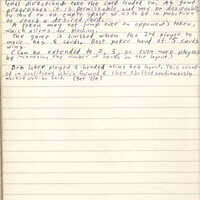 goal direction & take the card landed on. As game
progresses it is permissible and may be desirable
to land on an empty space so as to be in position
to reach a desired card.
A token may not jump over an opponent's token,
which allows for blocking.
The game is finished when the 2nd player to
move has 5 cards. Best poker hand of 5 cards
wins.
(Can be extended to 2, 3, or even more players
by increasing the number of cards in the layout)
later played 4-handed using 6x6 layout. This
in coalitions which formed & then shifted continuously.